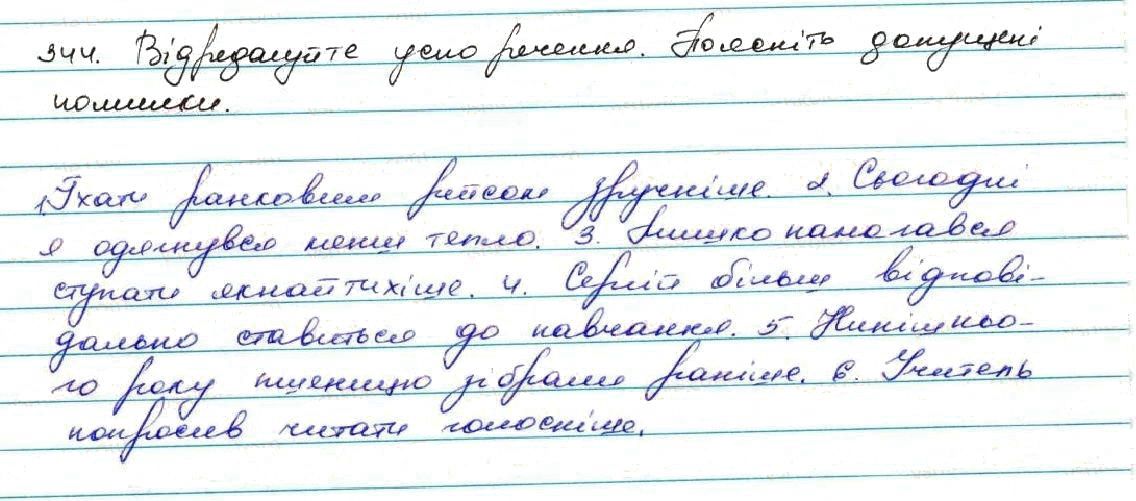 344. Відредагуйте усно речення. Поясніть допущені
помилки.
1. Їхати ранковим рейсом зручніше. 2. Сьогодні
я одягнувся менш тепло. 3. Мишко намагався
ступати якнайтихіше. 4. Сергій більш відпові-
дально ставиться до навчання. 5. Нинішньо-
го року пшеницю зібрали раніше. 6. Учитель
попросив читати голосніше.